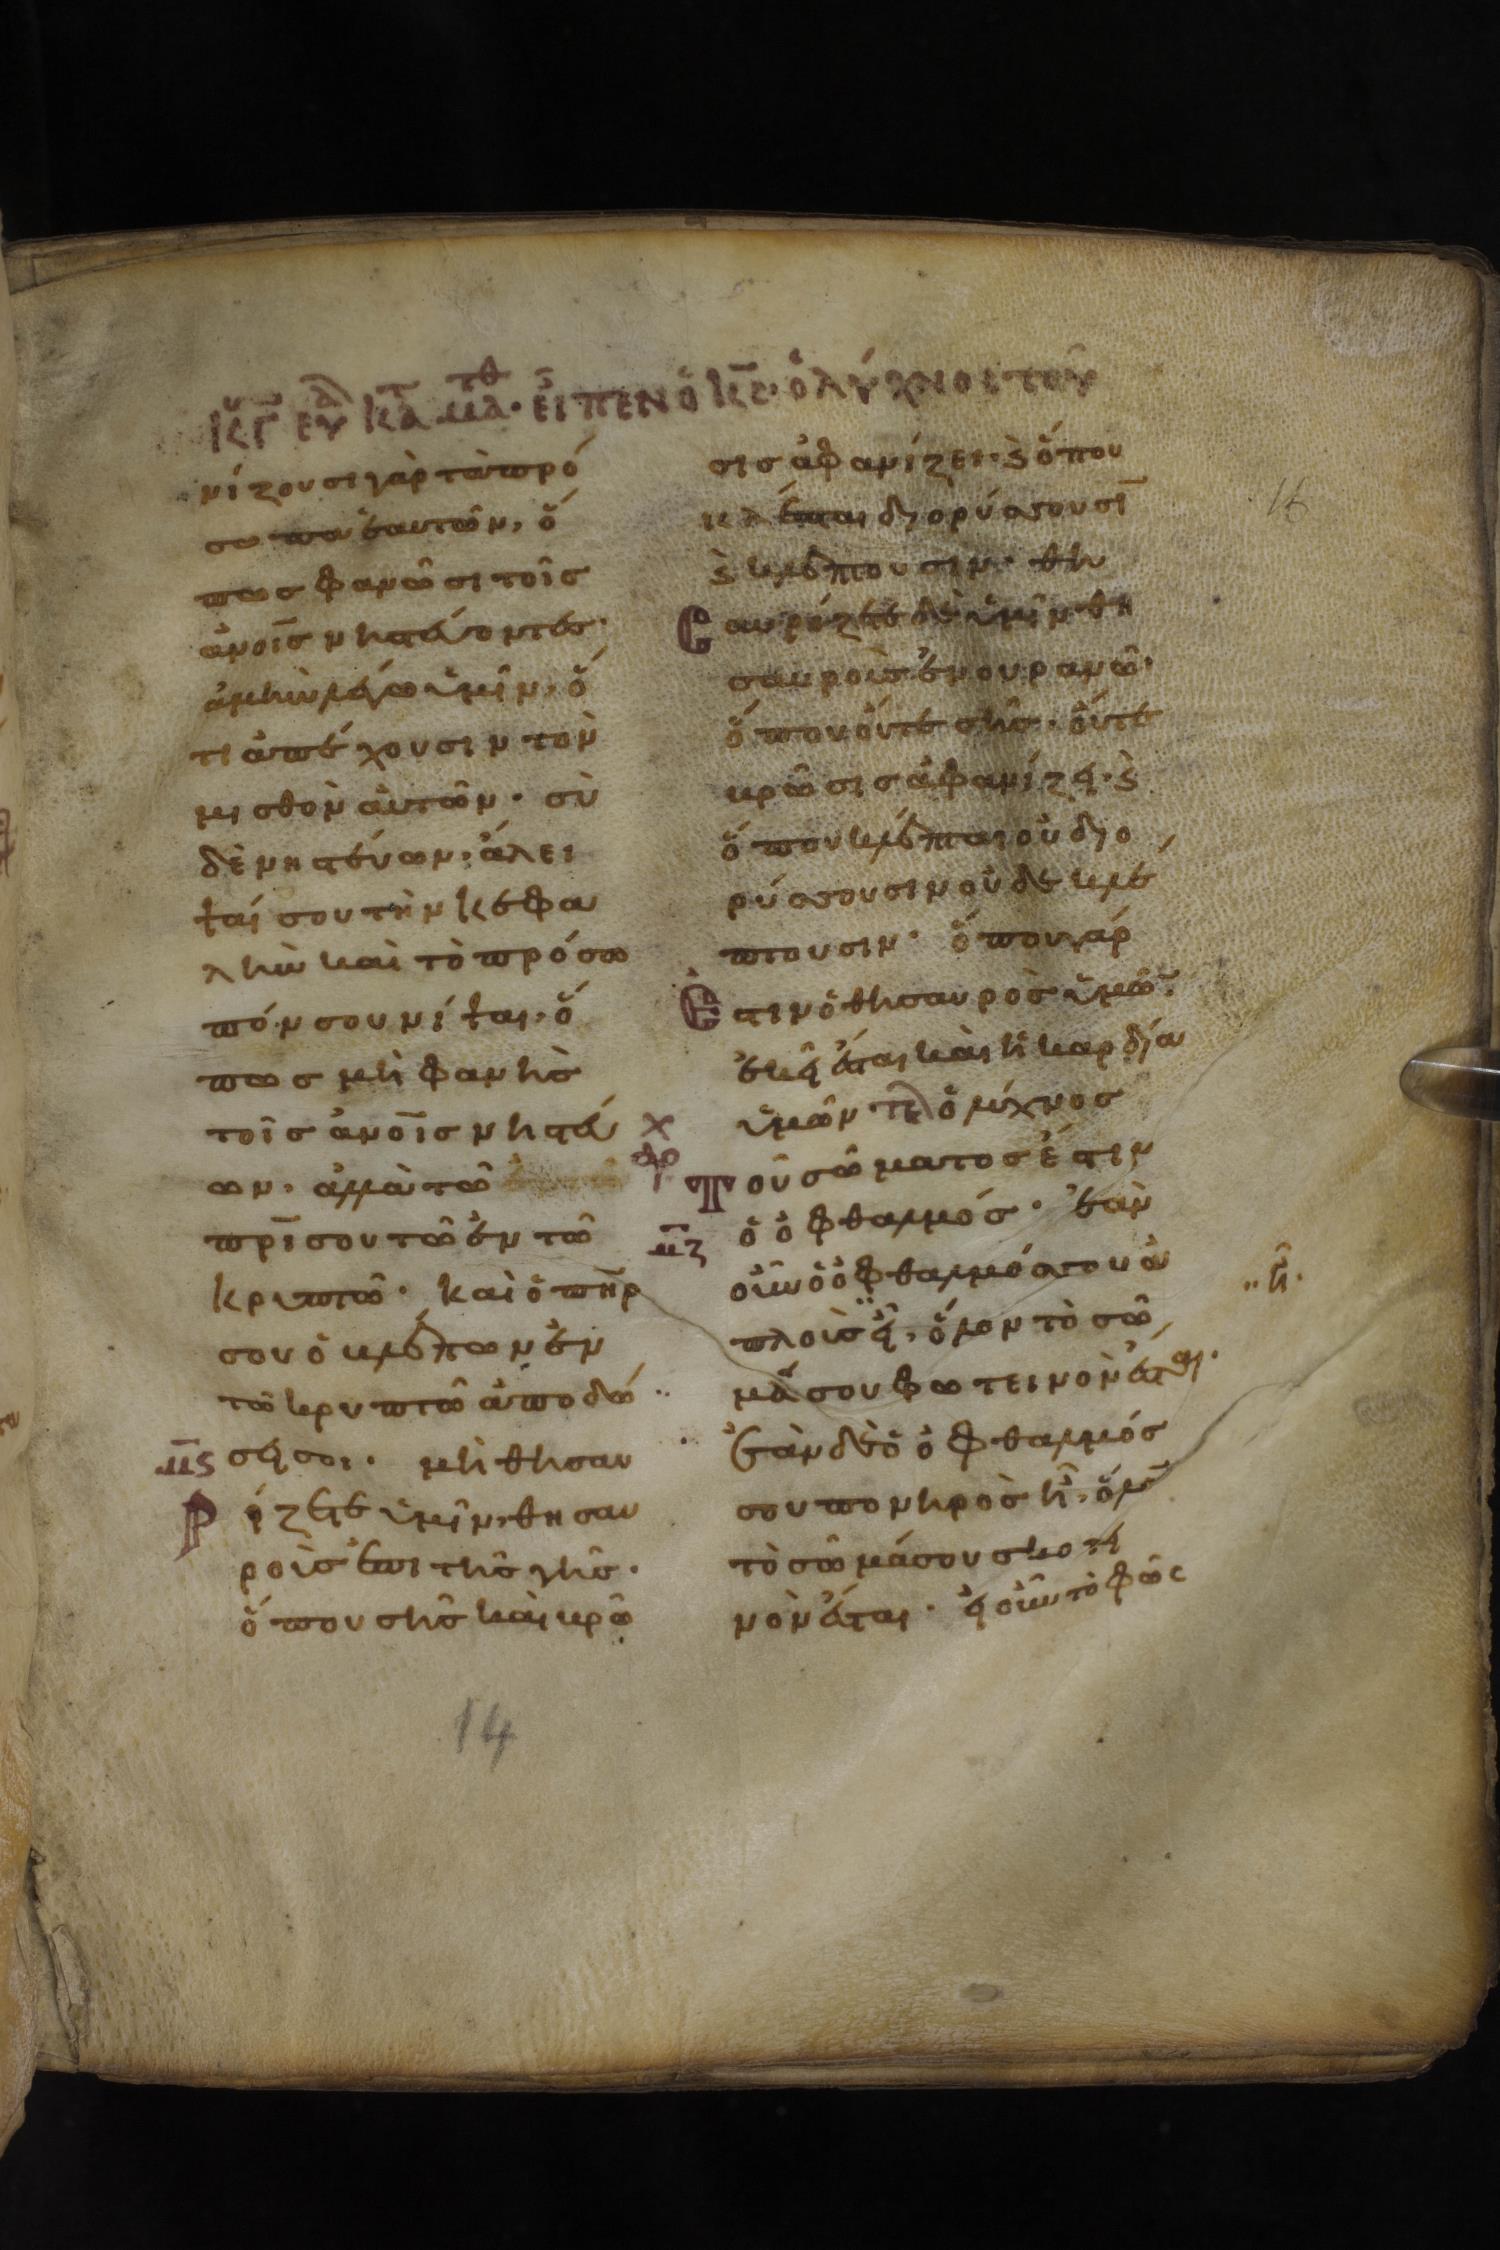 κγ ευ κατα ματθ· εἶπεν ὁ κς· ὁ λύχνος τοῦ
νίζουσι γὰρ τὰ πρό
σωπα ἑαυτῶν, ὅ
πως φανῶσι τοῖς
ἀνοῖς νηστεύοντες·
ἀμὴν λέγω ὑμῖν, ὅ
τι ἀπέχουσιν τὸν
μισθὸν αὐτῶν· σὺ
δὲ νηστεύων, ἄλει
ψαί σου τὴν κεφα
λὴν καὶ τὸ πρόσω
πόν σου νίψαι, ὅ
πως μὴ φανῆς
τοῖς ἀνοῖς νηστεύ
ων, ἀλλὰ τῶ
πρι σου τῶ ἐν τῶ
κρυπτῶ· καὶ ὁ πηρ
σου ὁ βλέπων ἐν
τῶ κρυπτῶ ἀποδώ
μς σει σοι· μὴ θησαυ
ρίζετε ὑμῖν, θησαυ
ροὺς ἐπι τῆς γῆς·
ὅπου σῆς καὶ βρῶ
σις ἀφανίζει· ϗ ὅπου
κλέπται διορύσσουσι
ϗ κλέπτουσιν· θη
σαυρίζετε δὲ ὑμῖν θη
σαυροὺς ἐν ουρανῶ·
ὅπου οὔτε σῆς· οὔτε
βρῶσις ἀφανίζει· ϗ
ὅπου κλέπται οὐ διο
ρύσσουσιν οὐδὲ κλέ
πτουσιν· ὅπου γάρ
ἐστιν ὁ θησαυρὸς ὑμῶ·
ἐκεῖ ἔσται καὶ ἡ καρδία
ὑμῶν τελ ὁ λύχνος
τοῦ σώματος ἐστιν
μζ ὁ ὀφθαλμός· ἐὰν
οὖν ὁ ὀφθαλμός σου ἁ
πλοῦς εἶ, ὅλον τὸ σῶ
ἦ·
μά σου φωτεινὸν ἔσται·
ἐὰν δὲ ὁ ὀφθαλμός
σου πονηρὸς ἦ, ὅλο
τὸ σῶμά σου σκοτει
νὸν ἔσται· εἰ οὖν τὸ φῶς
14